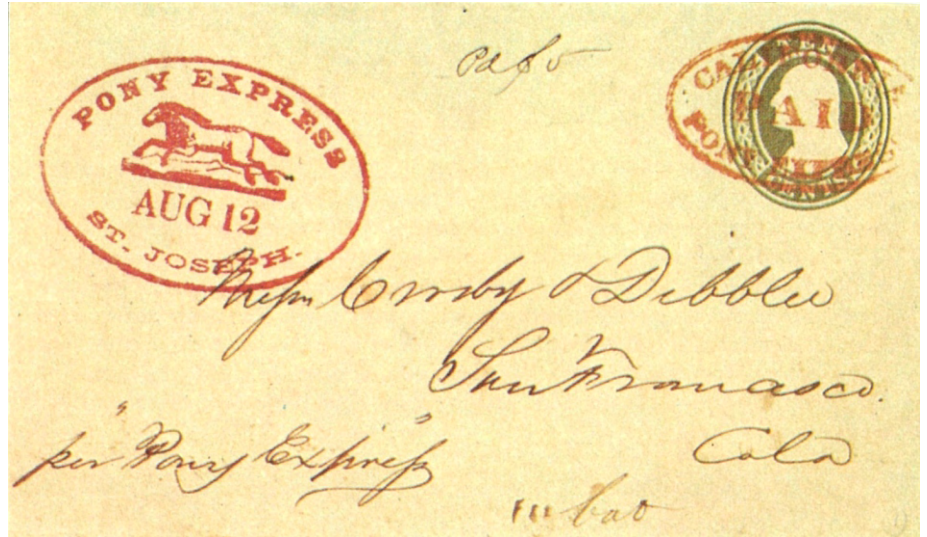 pd $5
PONY EXPRESS
AUG 12
ST. JOSEPH.
CALIFORNIA
PAID
PONY EXPRESS
Messrs Crosby & Dibblee
San Francisco.
Cala
"per Pony Express"